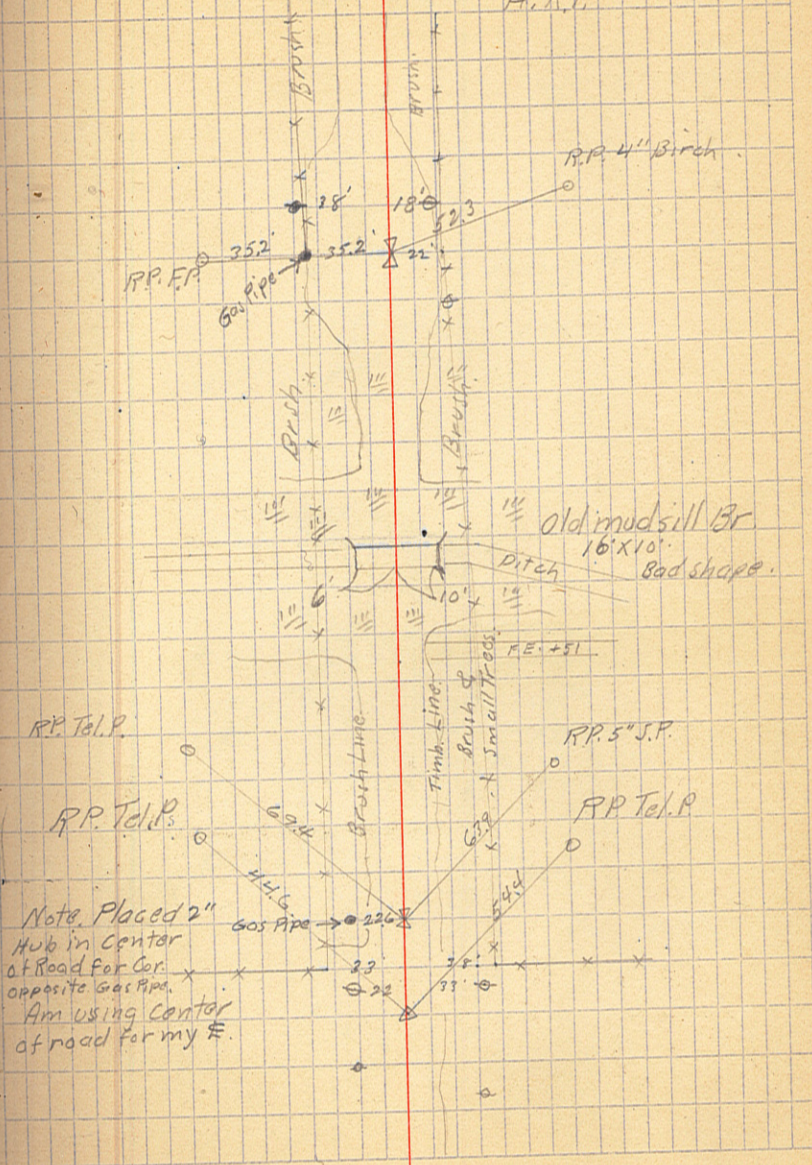 Brush
Brush.
R.P. 4" Birch
38'
18'
52.3
35.2'
35.2'
22'
R.P. F.P.
Gas Pipe
Brush
Brush.
Old mudsill Br.
16'X10'
Bad shape.
Ditch
6'
10'
F.E. +51
Brush Line
Timb. Line
Brush &
Small Trees.
R.P. Tel.P.
R.P. 5" J.P.
R.P. Tel.P.
R.P. Tel.P
69.4
63.9
44.6
54.4
Note. Placed 2"
Hub in Center
of Road for Cor.
opposite Gas Pipe.
Am using Center
of road for my ℄.
Gas Pipe
22.6
33'
38'
22
33'